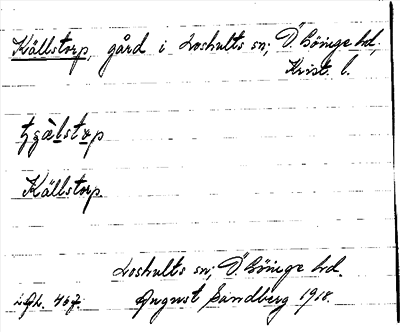 Källstorp, gård i Loshults sn; Ö. Göinge hd;
Krist. l.
Källstorp
Loshults sn; Ö. Göinge hd.
August Sandberg 1918.